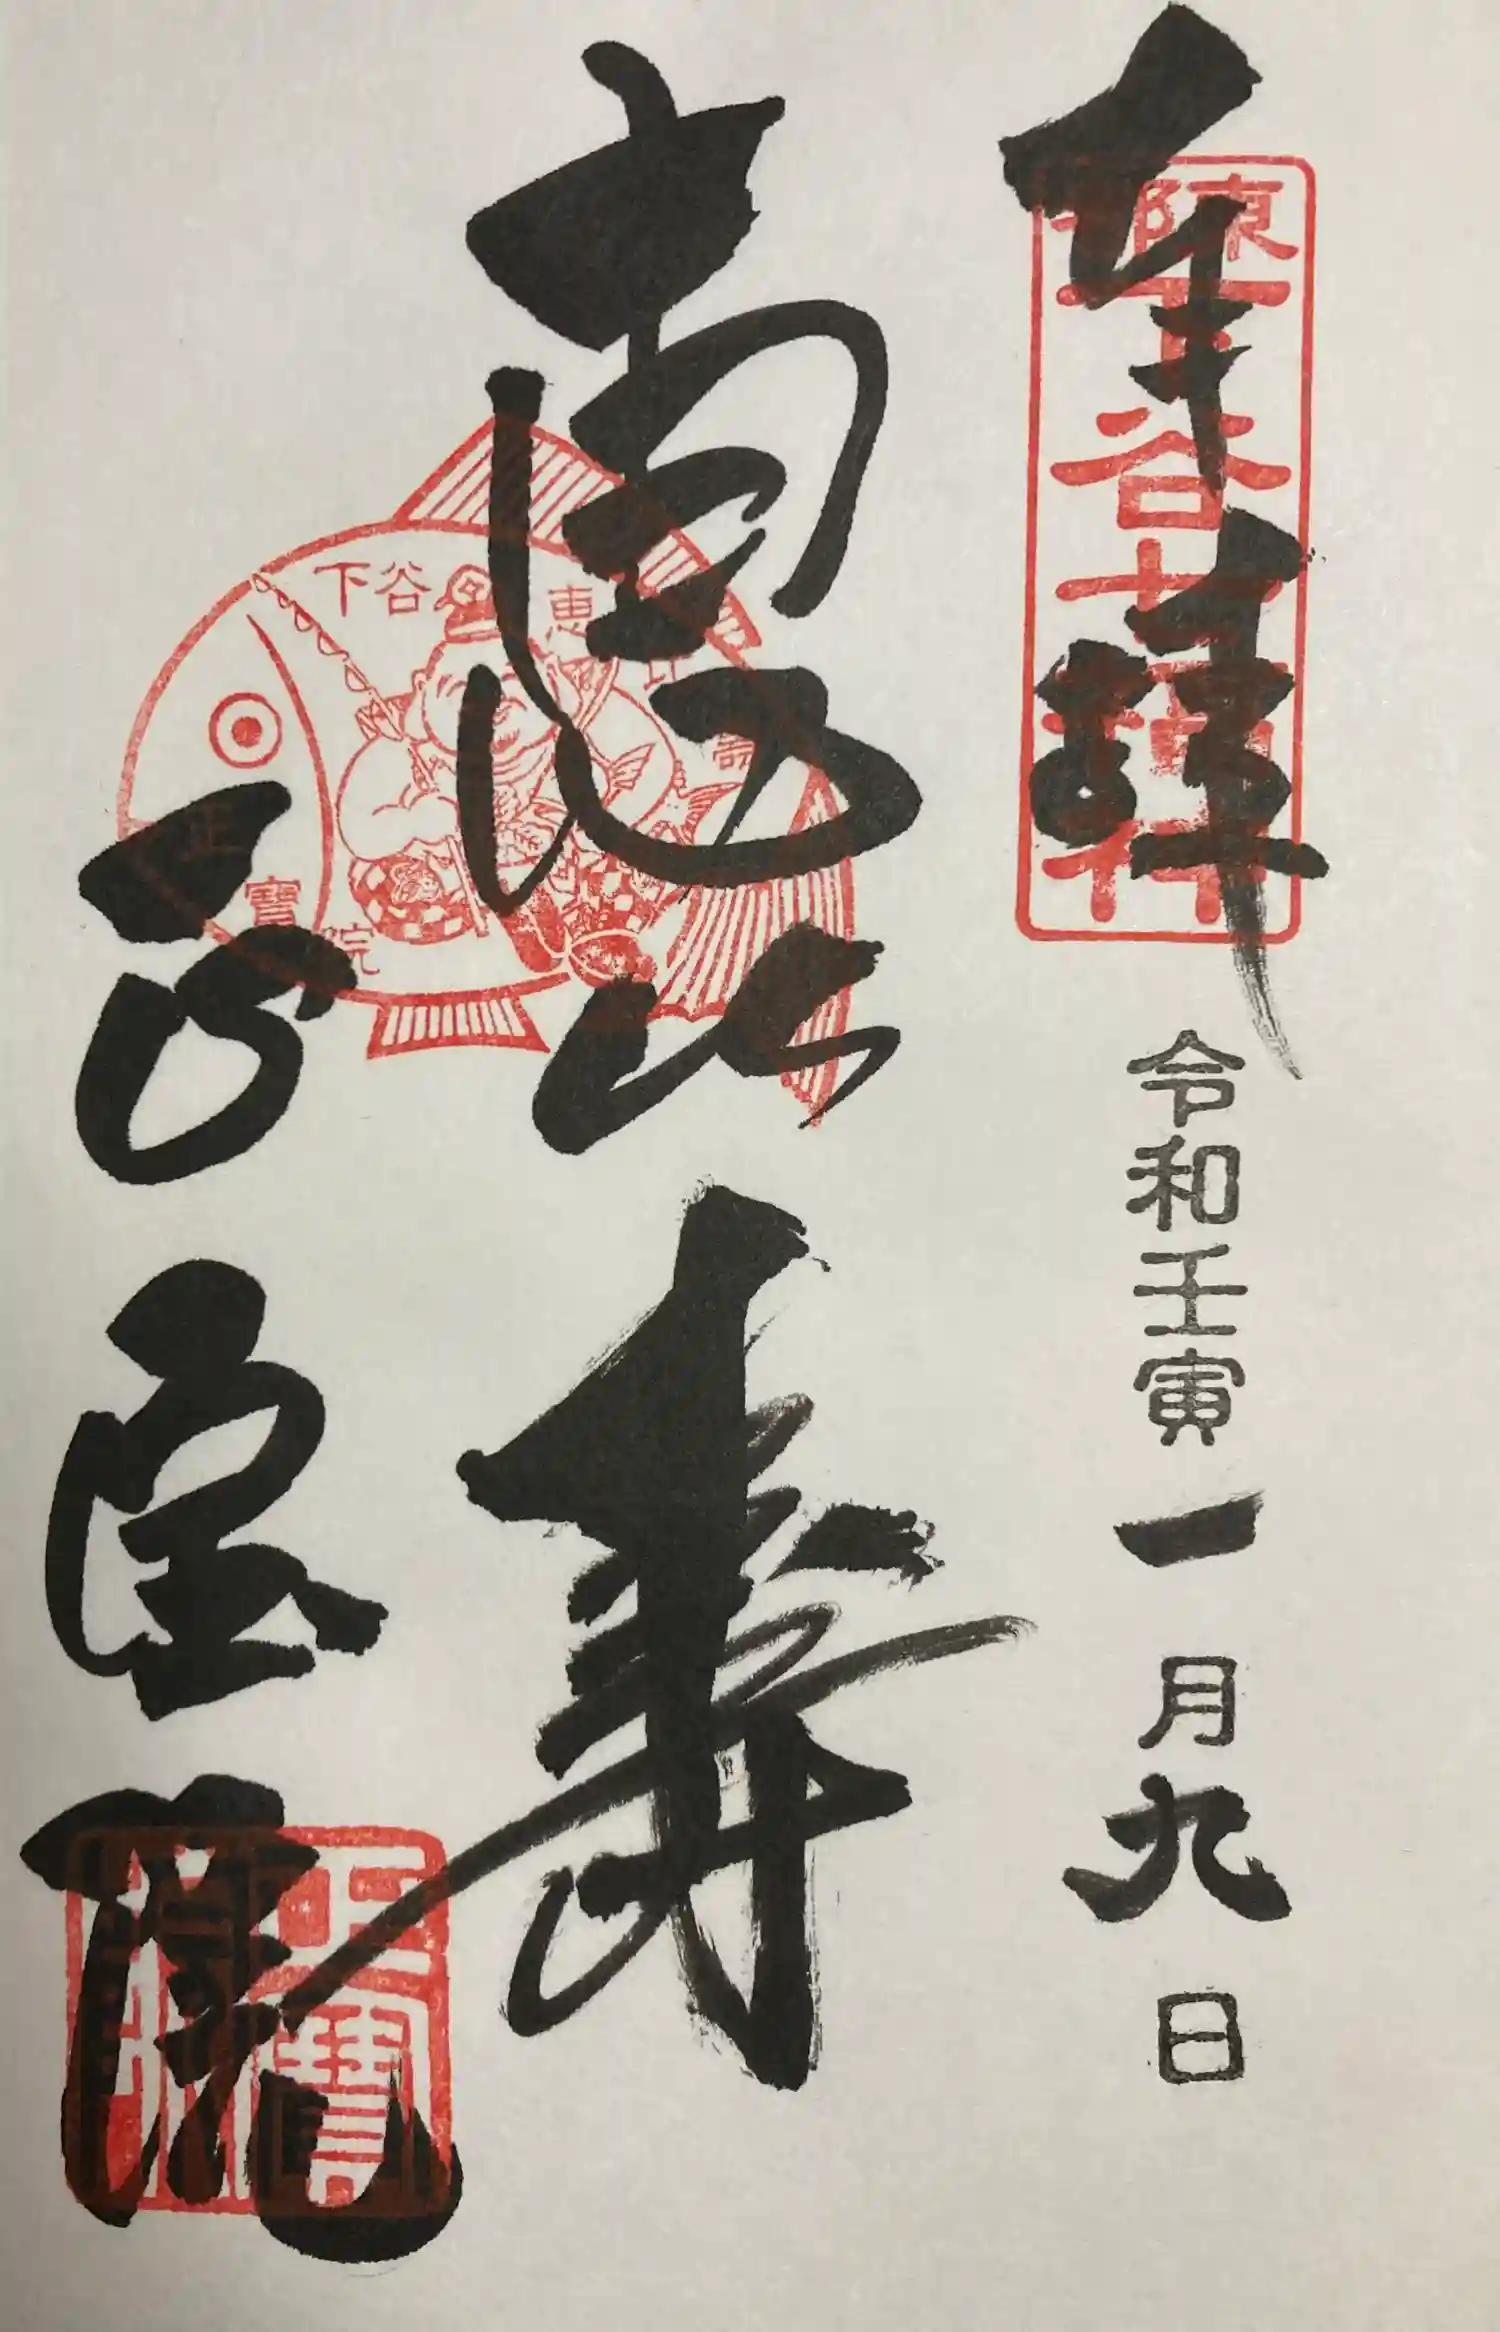 奉拝
東下谷七福神
令和壬寅一月九日
恵比寿
下谷恵比寿
正寶院
正宝院
正寶院